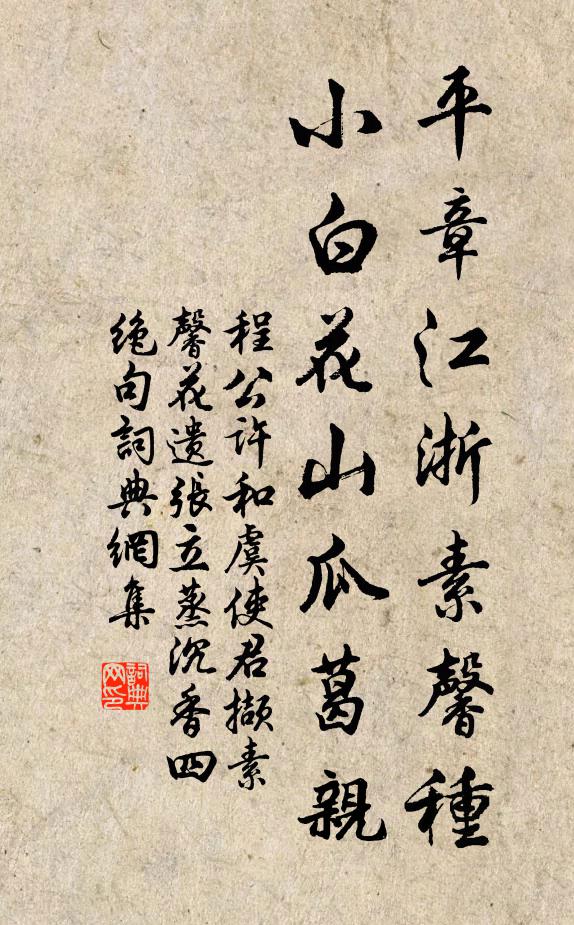 平章江浙素馨種
小白花山瓜葛親
程公許和虞使君擷素
馨花遗張立蒸沉香四
绝句詞典網集
詞典
网印